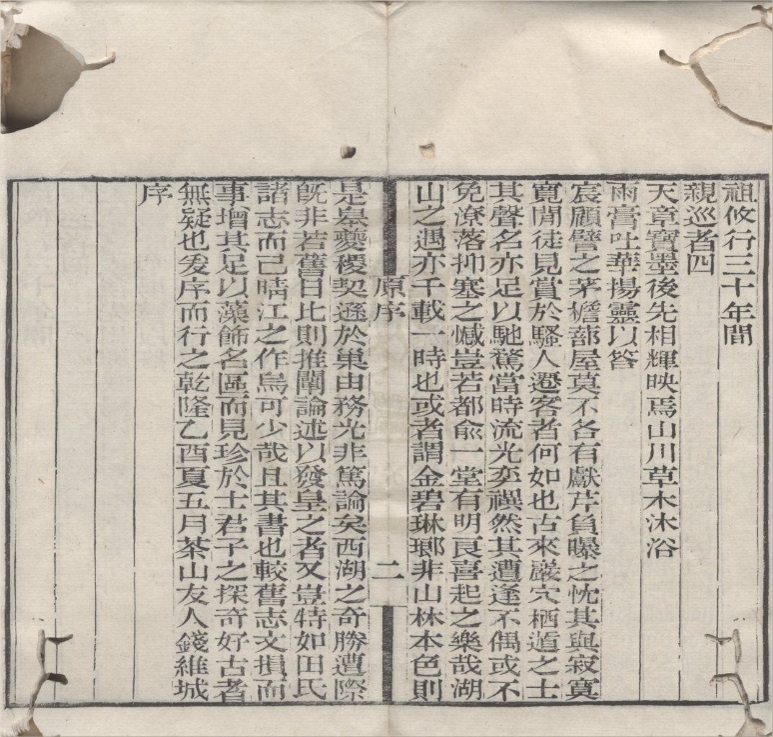 祖攸行三十年間
親巡者四
天章寶墨後先相輝映焉山川草木沐浴
雨膏吐華揚靈以答
宸顧譬之茅檐蔀屋莫不各有獻芹負曝之忱其與寂寞
寬閒徒見賞於騷人遷客者何如也古來巖穴栖遁之士
其聲名亦足以馳驚當時流光奕禩然其遭逢不偶或不
免潦落抑塞之憾豈若都俞一堂有明良喜起之樂哉湖
山之遇亦千載一時也或者謂金碧琳瑯非山林本色則
原序
二
是皋夔稷契遜於巢由務光非篤論矣西湖之奇勝遭際
旣非若舊日比則推闡論述以發皇之者又豈特如田氏
諸志而已晴江之作烏可少哉且其書也較舊志文損而
事增其足以藻飾名區而見珍於士君子之探奇好古者
無疑也爰序而行之乾隆乙酉夏五月茶山友人錢維城
序